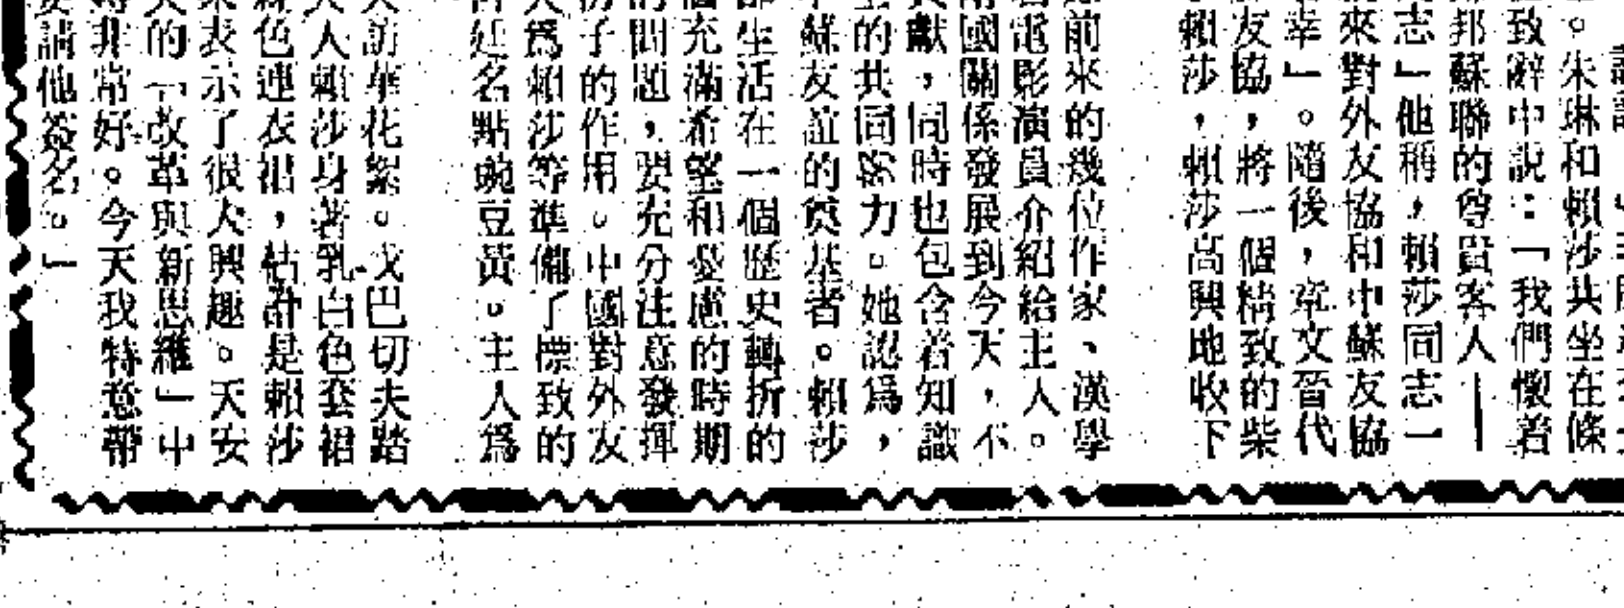 。朱琳和賴莎共坐在條
致辭中説：「我們懷着
邦蘇聯的尊貴客人——
志」他稱，賴莎同志一
來對外友協和中蘇友協
幸」。隨後，章文晉代
友協，將一個精致的柴
賴莎，賴莎高興地收下
前來的幾位作家、漢學
電影演員介紹給主人。
國關係發展到今天，不
獻，同時也包含着知識
的共同努力。她認爲，
蘇友誼的奠基者。賴莎
生活在一個歷史轉折的
充滿希望和憂慮的時期
的問題，要充分注意發揮
子的作用。中國對外友
爲賴莎等準備了標致的
廷名點豌豆黃。主人爲
訪華花絮。戈巴切夫踏
人賴莎身著乳白色套裙
色連衣裙，估計是賴莎
表示了很大興趣。天安
的「改革與新思維」中
非常好。今天我特意帶
請他簽名。」